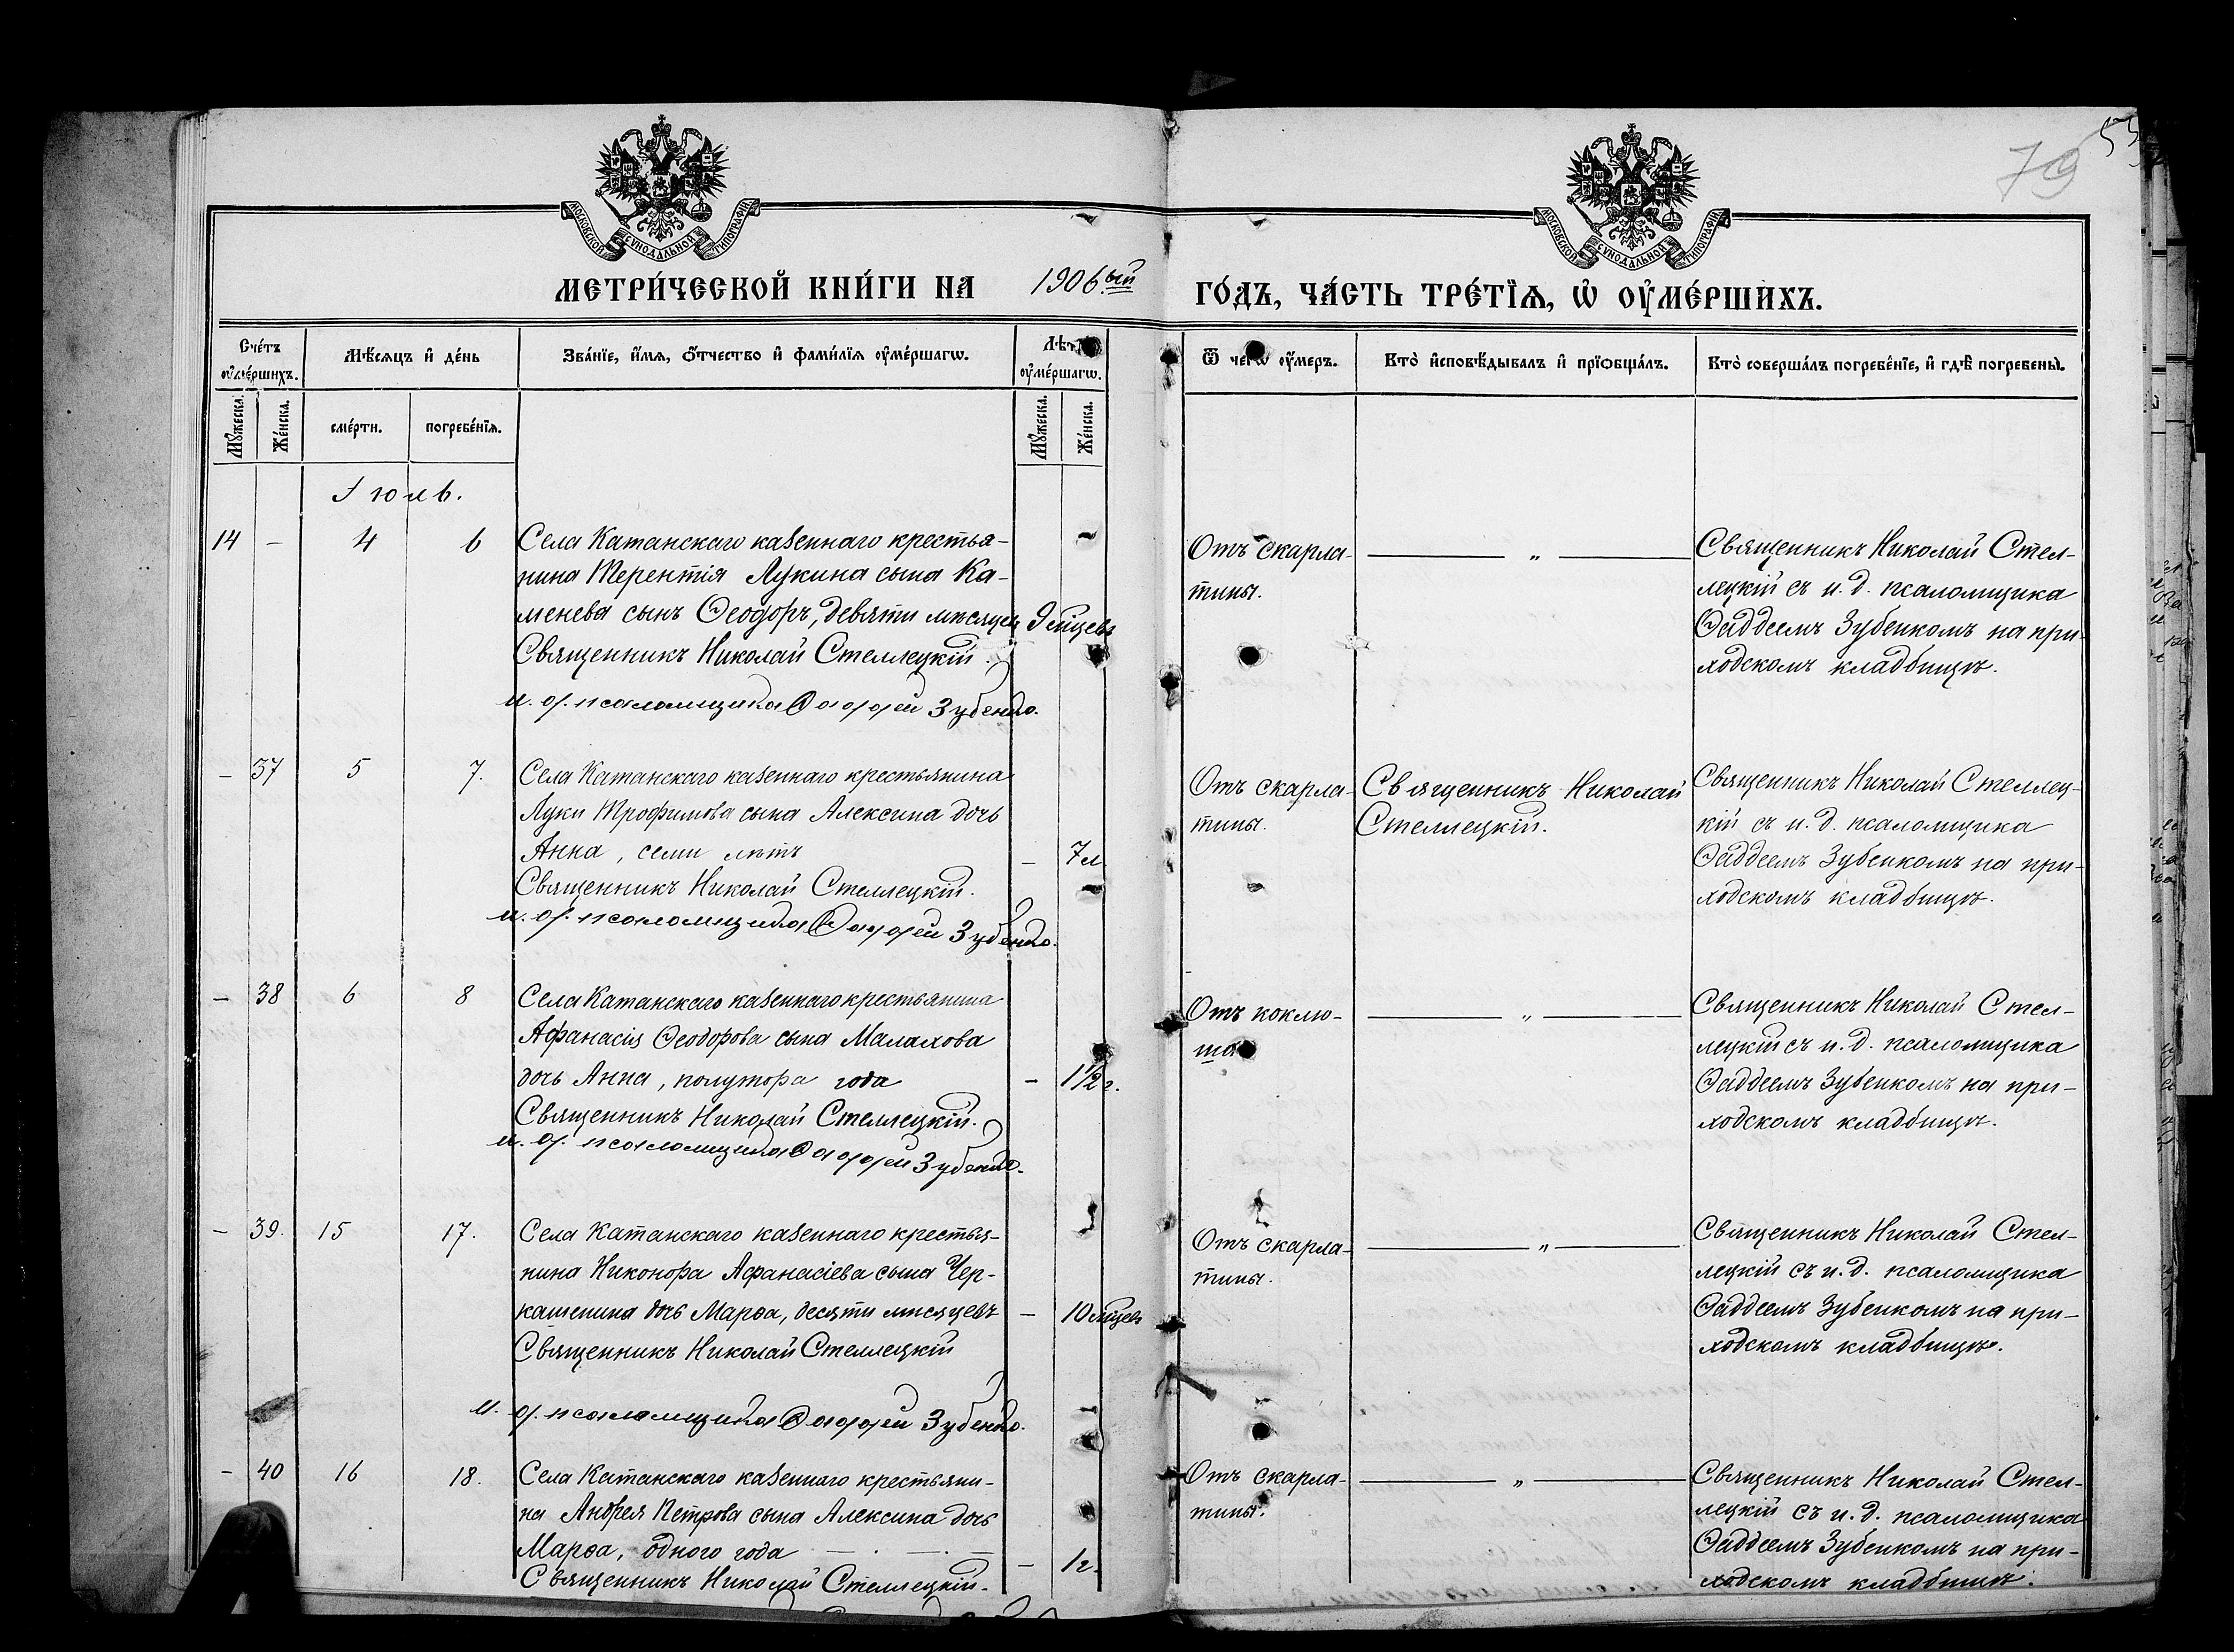 79
53
МОСКОВСКОЙ СУНОДАЛЬНОЙ ТИПОГРАФІИ
МОСКОВСКОЙ СУНОДАЛЬНОЙ ТИПОГРАФІИ
МЕТРИ́ЧЕСКОЙ КНИ́ГИ НА 1906ый ГО́ДЪ, ЧА́СТЬ ТРЕ́ТЇѦ, Ѡ҆ ОУ҆МЕ́РШИХЪ.
Сче́тъ оумершихъ.
Мѣсяцъ и де́нь
Зва́нїе, и҆́мѧ, ѻ҆́тчество и҆ фами́лїѧ оу҆ме́ршагѡ.
Лѣт
оу҆ме́ршагѡ.
Ѿ чегѡ̀ оу҆́меръ.
Кто̀ и҆сповѣ́дывалъ и҆ прїѻбща́лъ.
Кто̀ соверша́лъ погребе́нїе, и҆ гдѣ̀ погребены̀.
Мꙋ́жеска.
Же́нска.
сме́рти.
погребе́нїѧ.
Мꙋ́жеска.
Же́нска.
Іюль.
14 - 4 6
Села Катанскаго казеннаго крестья-
нина Терентія Лукина сына Ка-
менева сынъ Ѳеодоръ, девяти мѣсяцев 9 мцевъ
Священникъ Николай Стеллецкій.
и. д. псаломщика Ѳаддей Зубенко.
Отъ скарла-
тины.
— „ —
Священникъ Николай Стел-
лецкій съ и. д. псаломщика
Ѳаддеемъ Зубенкомъ на при-
ходскомъ кладбищѣ.
- 37 5 7.
Села Катанскаго казеннаго крестьянина
Луки Трофимова сына Алексина дочь
Анна, семи лѣтъ - 7 л.
Священникъ Николай Стеллецкій.
и. д. псаломщика Ѳаддей Зубенко.
Отъ скарла-
тины.
Священникъ Николай
Стеллецкій.
Священникъ Николай Стеллец-
кій съ и. д. псаломщика
Ѳаддеемъ Зубенкомъ на при-
ходскомъ кладбищѣ.
- 38 6 8
Села Катанскаго казеннаго крестьянина
Афанасія Ѳеодорова сына Малахова
дочь Анна, полутора года - 1½ г.
Священникъ Николай Стеллецкій.
и. д. псаломщика Ѳаддей Зубенко.
Отъ коклю-
ша
— „ —
Священникъ Николай Стел-
лецкій съ и. д. псаломщика
Ѳаддеемъ Зубенкомъ на при-
ходскомъ кладбищѣ.
- 39. 15 17.
Села Катанскаго казеннаго крестья-
нина Никонора Афанасіева сына Чер-
кашенина дочь Марѳа, десяти мѣсяцевъ - 10 мцевъ
Священникъ Николай Стеллецкій
и. д. псаломщика Ѳаддей Зубенко.
Отъ скарла-
тины.
— „ —
Священникъ Николай Стел-
лецкій съ и. д. псаломщика
Ѳаддеемъ Зубенкомъ на при-
ходскомъ кладбищѣ.
- 40 16 18.
Села Катанскаго казеннаго крестьяни-
на Андрея Петрова сына Алексина дочь
Марѳа, одного года - 1 г.
Священникъ Николай Стеллецкій.
Отъ скарла-
тины.
— „ —
Священникъ Николай Стел-
лецкій съ и. д. псаломщика
Ѳаддеемъ Зубенкомъ на при-
ходскомъ кладбищѣ.